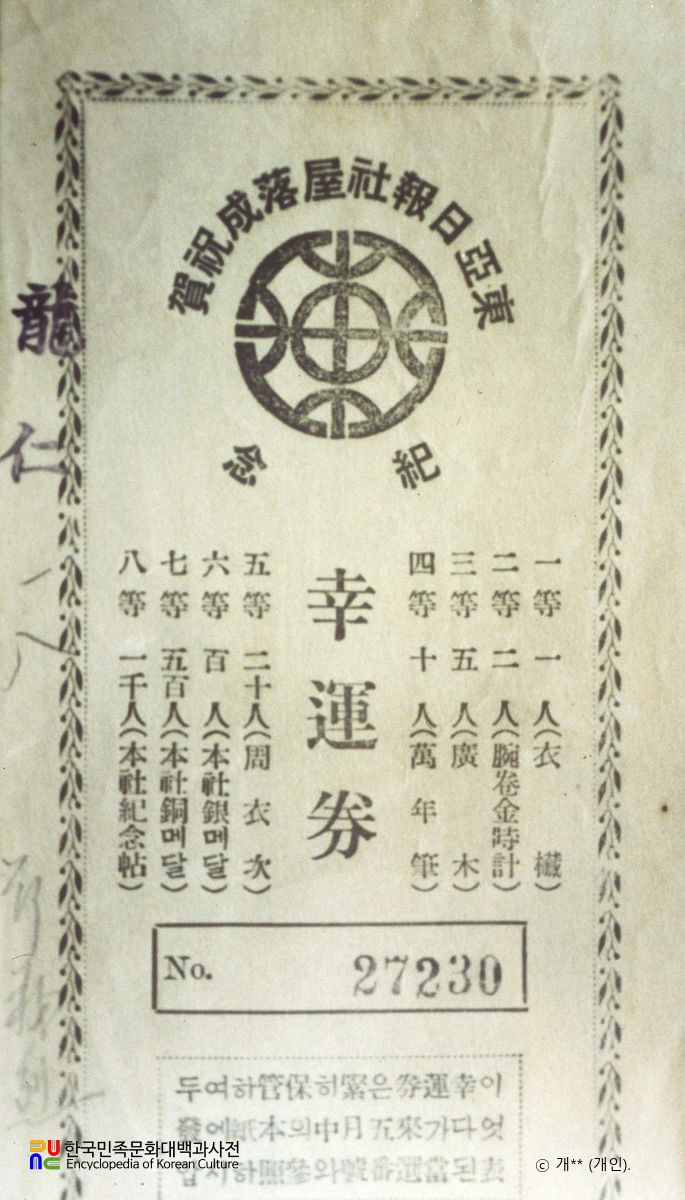 東亞日報社屋落成祝賀
紀念
一等 一人(衣欌)
二等 二人(腕卷金時計)
三等 五人(廣木)
四等 十人(萬年筆)
幸運券
五等 二十人(周衣次)
六等 百人(本社銀메달)
七等 五百人(本社銅메달)
八等 一千人(本社紀念帖)
龍仁
一八
No. 27230
이幸運券은緊히保管하여두
엇다가來五月中의本紙에發
表된當選番號와參照하시
한국민족문화대백과사전
Encyclopedia of Korean Culture
ⓒ 개** (개인).